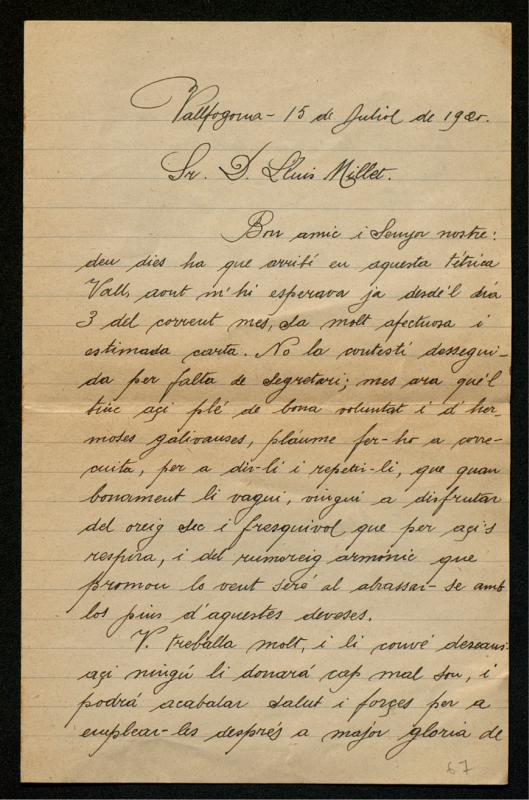 Vallfogona - 15 de Juliol de 1920.
Sr. D. Lluis Millet.
Bon amic i Senyor nostre:
deu dies ha que arribí en aquesta tètrica
Vall, aont m'hi esperava ja desdé'l día
3 del corrent mes, sa molt afectuosa i
estimada carta. No la contestí dessegui-
da per falta de Segretari; mes ara qué'l
tinc açi plé de bona voluntat i d'her-
moses galivanses, pláume fer-ho a corre-
cuita, per a dir-li i repetir-li, que quan
bonament li vagui, vingui a disfrutar
del oreig sec i fresquivol que per açi's
respira, i del rumoreig armónic que
promou lo vent seré al abrassar-se amb
los pins d'aquestes deveses.
V. treballa molt, i li convé descans;
açi ningú li donará cap mal son, i
podrá acabalar salut i forçes per a
emplear-les després a major gloria de
67